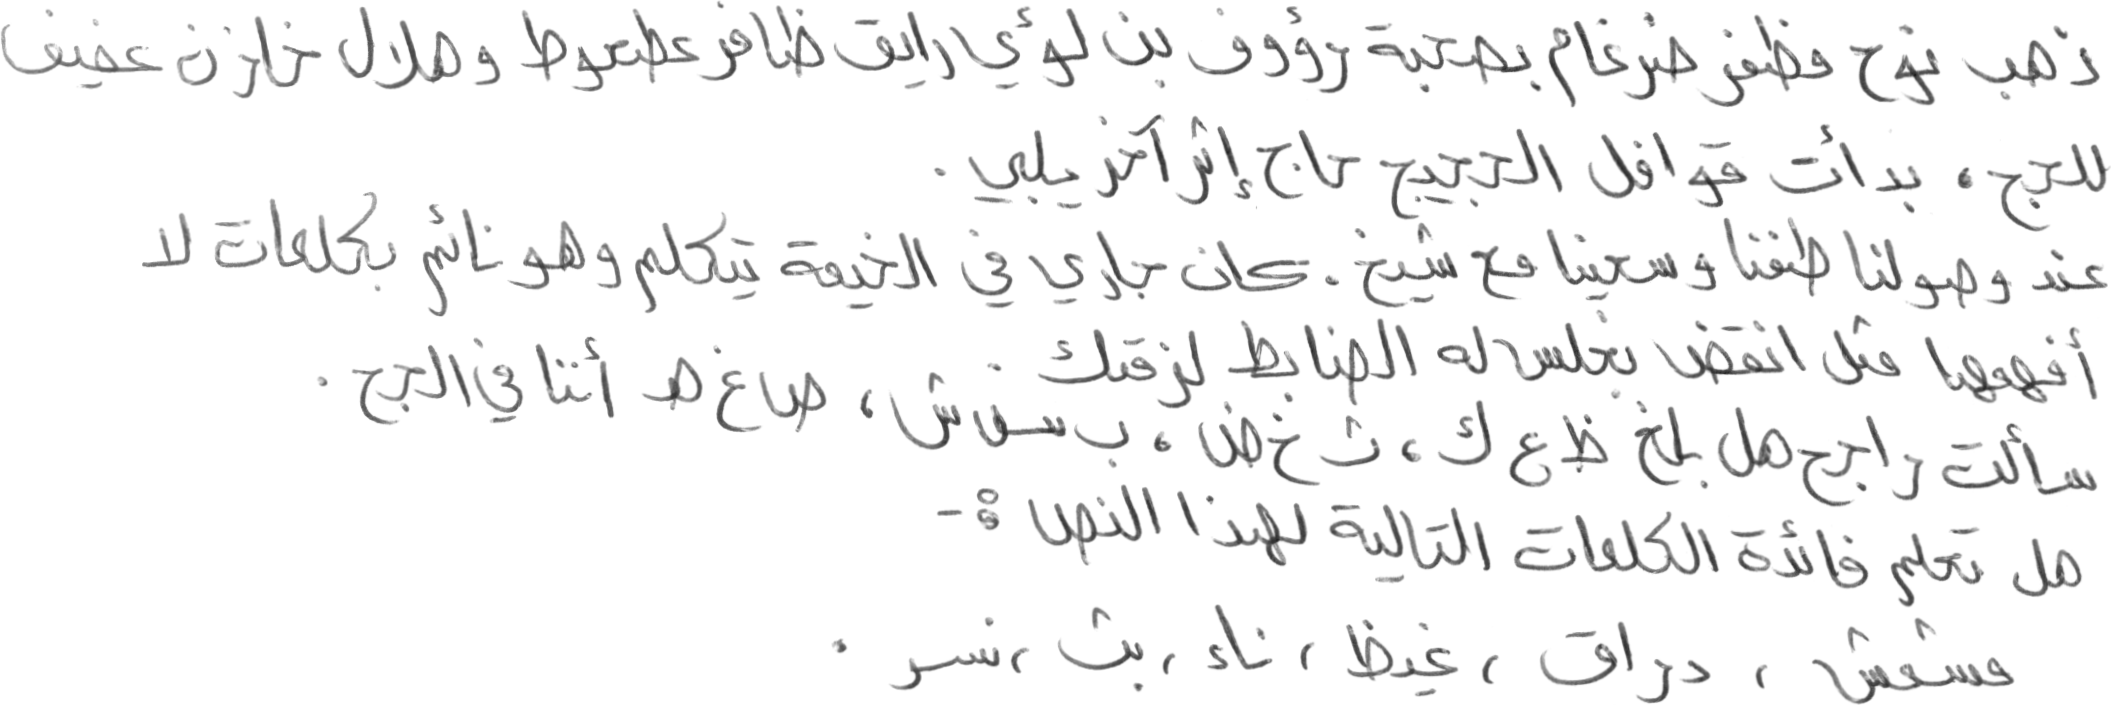 ذهب نوح مظفر ضرغام بصحبة رؤوف بن لؤي رايق ظافر عطعوط وهلال خازن عفيف
للحج، بدأت قوافل الحجيج حاج إثر آخر يلبي.
عند وصولنا طفنا وسعينا مع شيخ. كان جاري في الخيمة يتكلم وهو نائم بكلمات لا
أفهمها مثل انقض نجلس له الضابط لزقتك
سألت راجح هل بلخ ظ ع ك، ث خ ض، ب سفاش، صاغ هد أثنا في الحج.
هل تعلم فائدة الكلمات التالية لهذا النص :-
مشمش، دراق، غيظ، ناء، بث، نسر.